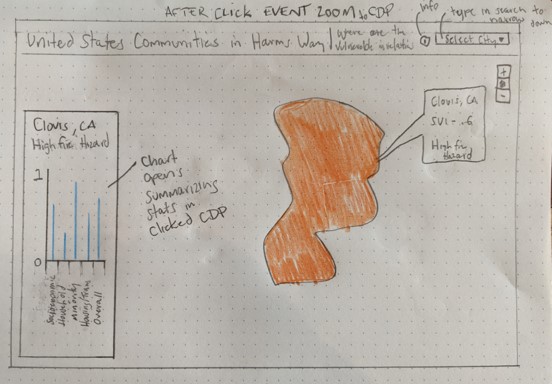 AFTER CLICK EVENT ZOOM to CDP
info
type in search to
narrow
down
United States Communities in Harms Way
where are the
vulnerable
i
Select City
+
-
Clovis, CA
High fire Hazard
1
0
Socioeconomic
Household
Minority
Overall
Chart
opens
summarizing
stats in
clicked CDP
Clovis, CA
SVI - .6
High fire
hazard